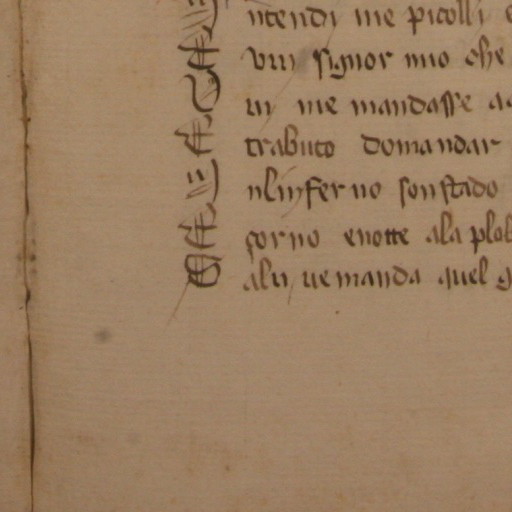 ntendi me picolli e
uui signor mio che
ui me mandasse a
trabuto domandar
nlinferno son stado
çorno enotte ala plob
alui ue manda quel g